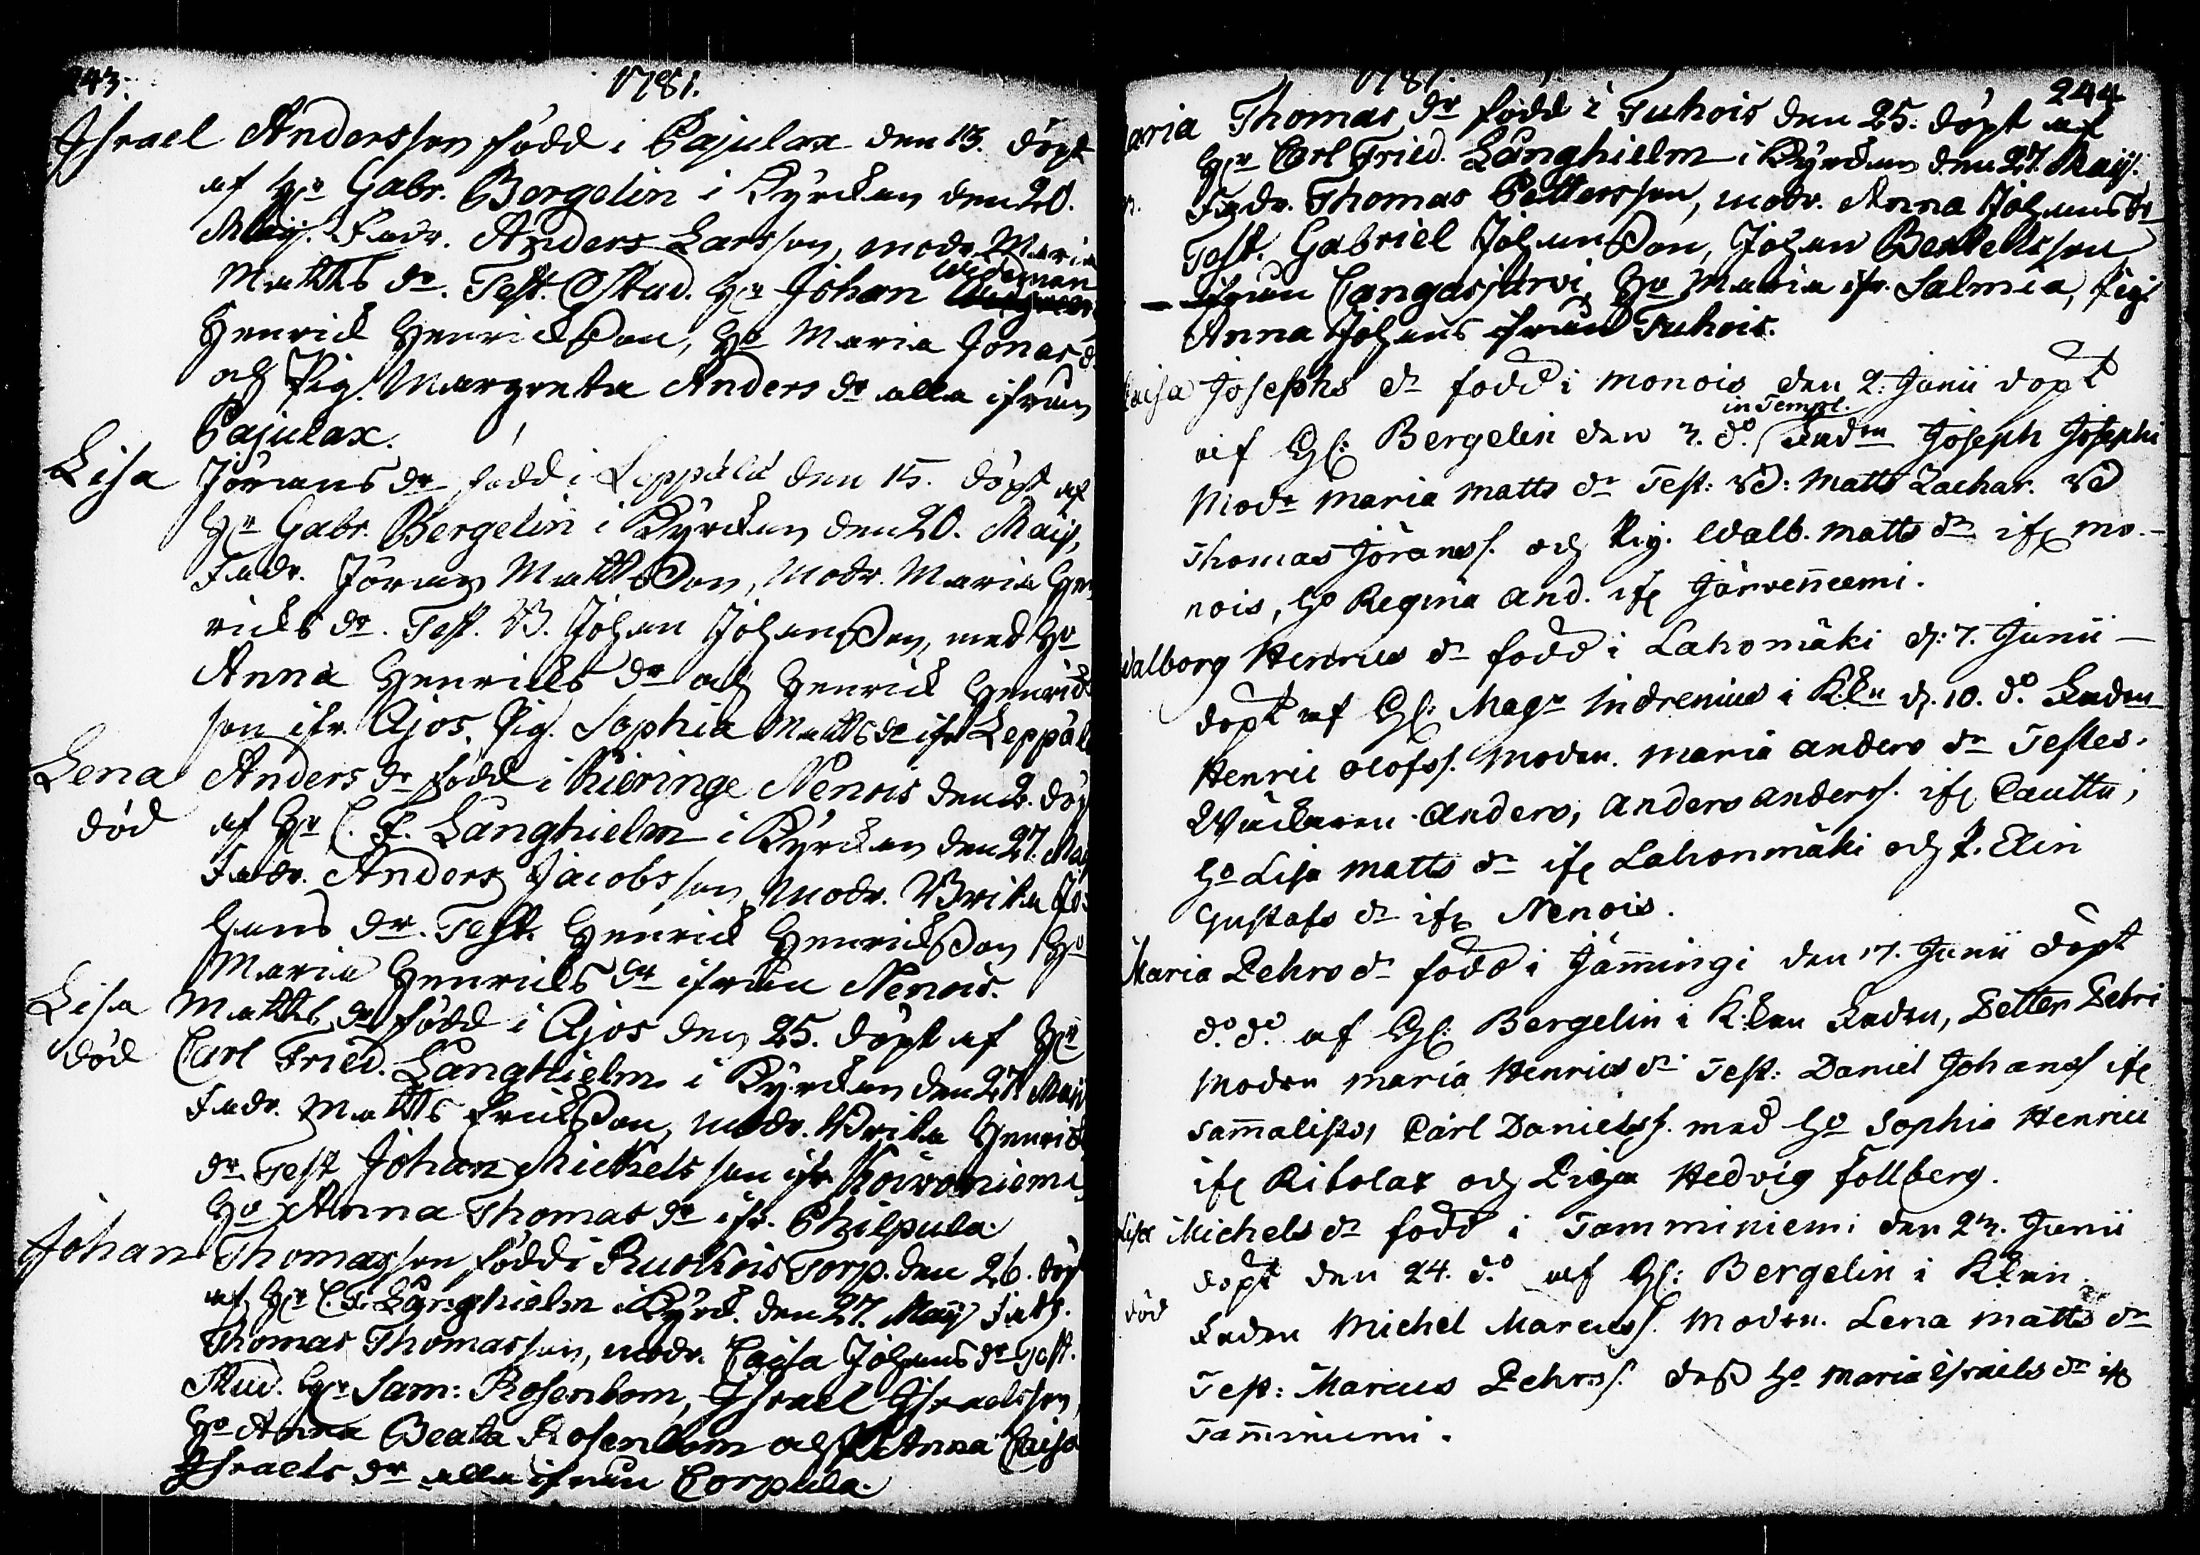 243.
1781.
Israel Andersson född i Pajulax den 13. döpt
af Hr Gabr. Bergelin i Kyrckan den 20.
Maij. Fadr. Anders Larsson, modr. Maria
Matts dr. Test. Stud. Hr Johan Wideman
Henrick Henricksson, Ho Maria Jonas d.
och Pig. Margreta Anders dr alla ifrån
Pajulax.
Lisa Jörans dr född i Leppälä den 15. döpt af
Hr Gabr. Bergelin i Kyrckan den 20. Maij,
Fadr. Jöran Mattsson, Modr. Maria Hen
ricks dr. Test. B. Johan Johansson, med Ho
Anna Henricks dr och Henrick Henrick
son ifr. Ajos, Pig. Sophia Matts dr ifr Leppäl
Lena Anders dr född i Kieringe Nenois den 2. döp
död af Hr C. F. Långhielm i Kyrckan den 27. Maij
Fadr. Anders Jacobsson, Modr. Brita Jo
hans dr. Test. Henrick Henricksson Ho
Maria Henricks dr ifrån Nenois.
Lisa Matts dr född i Ajos den 25. döpt af Hr
död Carl Fried. Långhielm i Kyrckan den 27. Maij
Fadr. Matts Ericksson, modr. Brita Henrick
dr Test Johan Michelsson ifr Koivoniemi
Ho Anna Thomas dr ifr. Philpula.
Johan Thomasson född i Ruokois Torp. den 26. döp
af Hr C. F. Långhielm i Kyrck. den 27. Maij Fadr.
Thomas Thomasson, modr. Caisa Johans dr Test.
Stud. Hr Sam: Rosenbom, Israel Israelsson,
Ho Anna Beata Rosenbom och P. Anna Caisa
Israels dr alla ifrån Corpula.
1781.
244
Maria Thomas dr född i Tuhois den 25. döpt af
Hr Carl Fried. Långhielm i Kyrckan den 27. Maij.
Fadr. Thomas Pettersson, modr. Anna Johans dr
Test. Gabriel Johansson, Johan Bertellsson
ifrån Cangasjärvi, Ho Maria ifr. Salmia, Pig.
Anna Johans ifrån Tuhois.
Caisa Josephs dr född i Monois den 2. Junii döpt
in Templ.
af Hr: Bergelin den 3. do. Fadrn Joseph Josephs
Modr Maria Matts dr Test: Bd: Matts Zachar. Bd
Thomas Jöranss. och Pig. Walb. Matts dr ifr Mo-
nois, Ho Regina And. ifr Järvenneemi.
Walborg Henrics dr född i Lahomäki d: 7. Junii
döpt af Hr: Magr Indrenius i K:kn d. 10. do. Fadrn
Henric Olofss. Modrn. Maria Anders dr Testes.
Wäckaren Anders, Anders Anderss. ifr Cauttu,
Ho Lisa Matts dr ifr Lahonmäki och P. Elin
Gustafs dr ifr Nenois.
Maria Pehrs dr född i Jämingi den 17. Junii döpt
do. do. af Hr: Bergelin i K:kan Fadrn, Petter Petri
Modrn Maria Henrics dr Test: Daniel Johanss ifr
Samalisto, Carl Danielss. med Ho Sophia Henrici
ifr Kikolax och Piga Hedvig Follberg.
Lisa Michels dr född i Tamminiemi den 23. Junii
död döpt den 24. do. af Hr: Bergelin i K:kan.
Fadrn Michel Marcuss. Modrn. Lena Matts dr
Test: Marcus Pehrss. dess Ho Maria Israels dr ifr
Taminiemi.